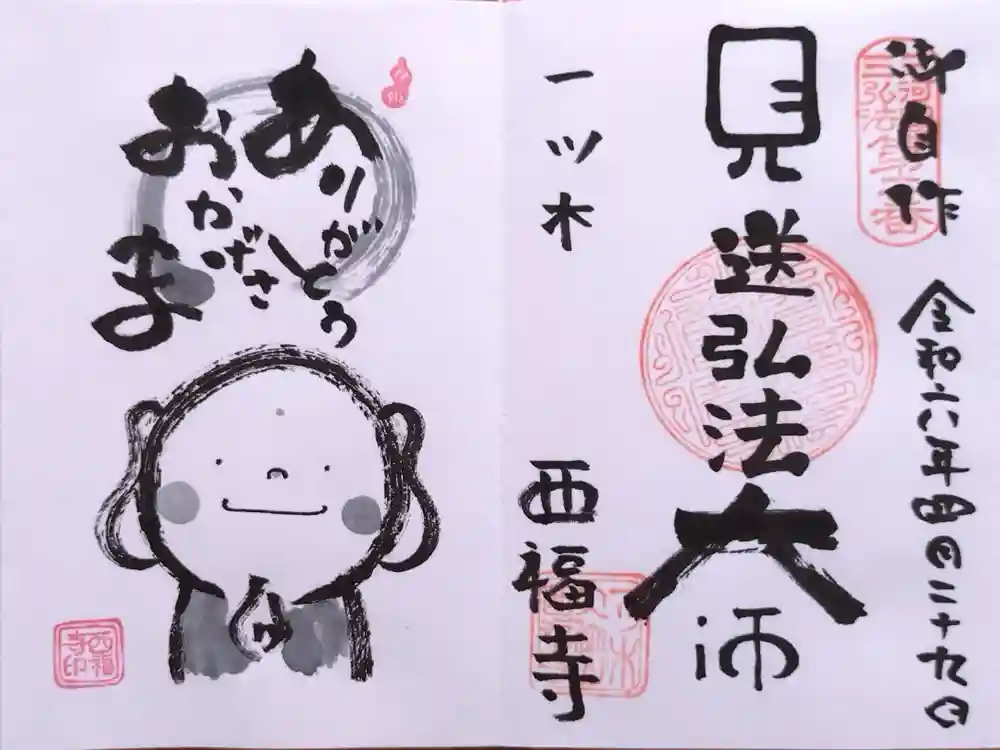 御自作
令和六年四月二十九日
見送弘法大師
一ツ木
西福寺
ありがとう
おかげさま
西福寺印